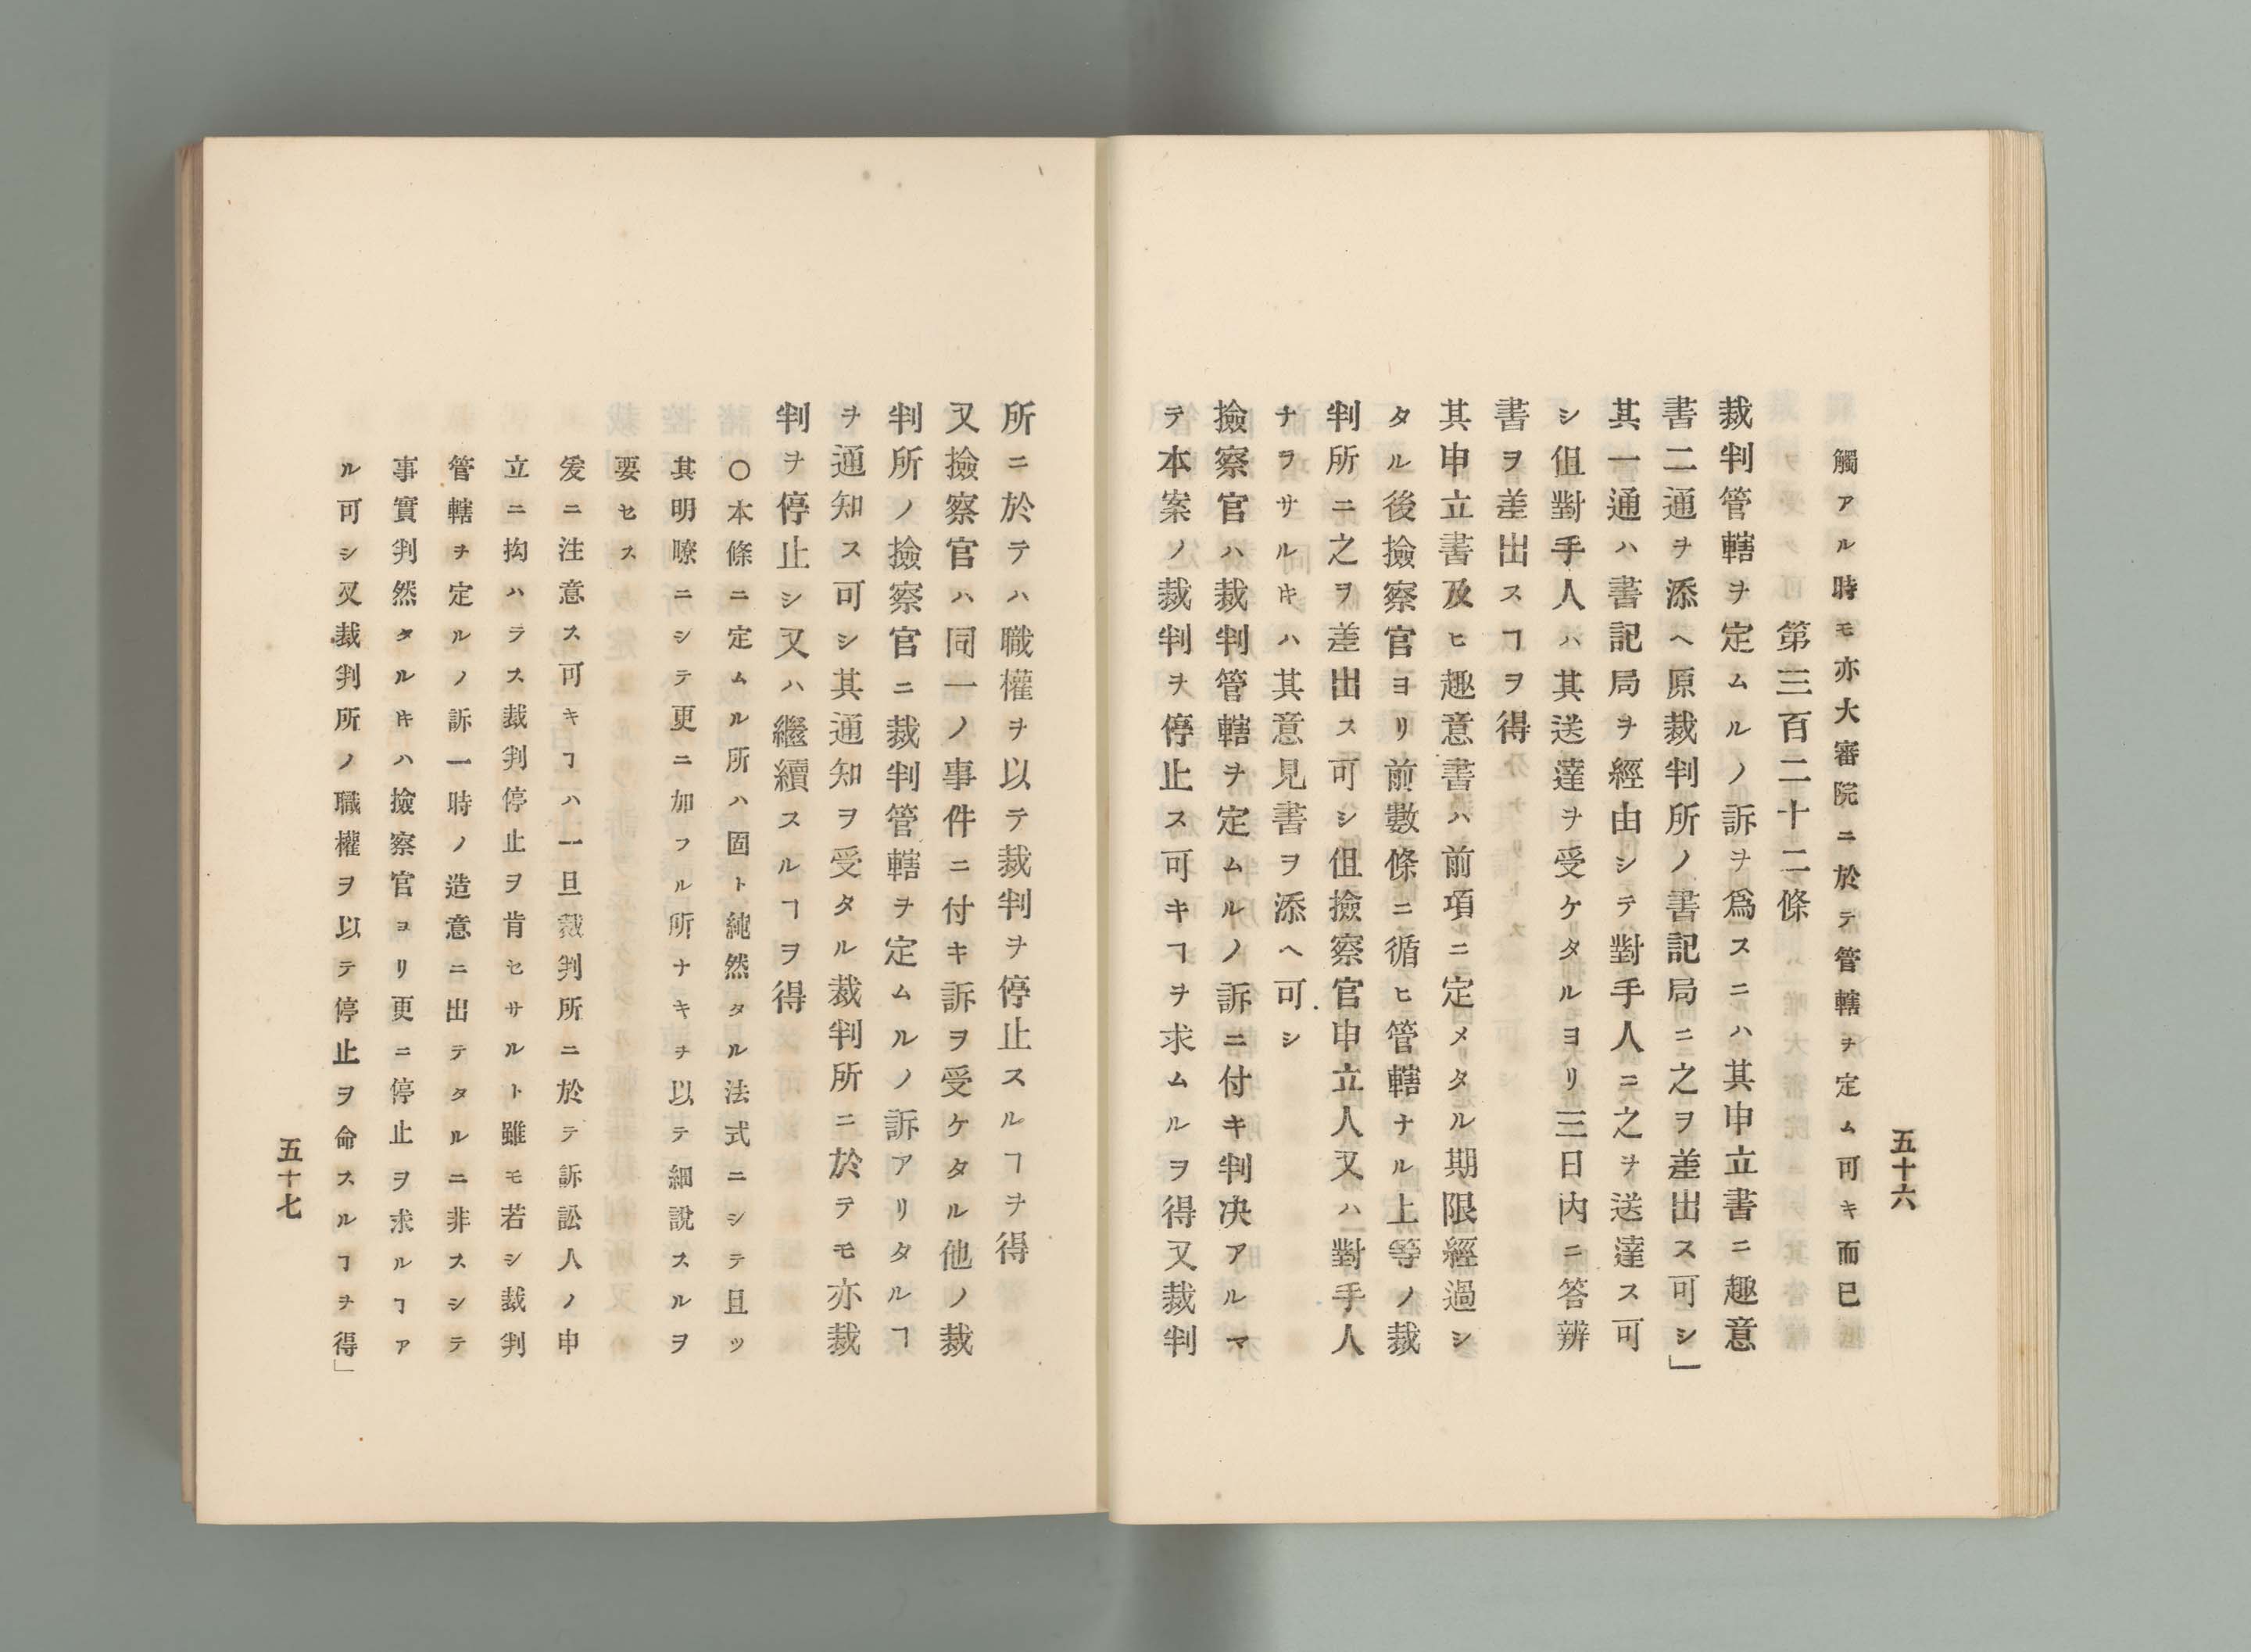 五十六
觸アル時モ亦大審院ニ於テ管轄ヲ定ム可キ而已
第三百二十二條
裁判管轄ヲ定ムルノ訴ヲ爲スニハ其申立書ニ趣意
書二通ヲ添ヘ原裁判所ノ書記局ニ之ヲ差出ス可シ」
其一通ハ書記局ヲ經由シテ對手人ニ之ヲ送達ス可
シ伹對手人ハ其送達ヲ受ケタルヨリ三日内ニ答辨
書ヲ差出スヿヲ得
其申立書及ヒ趣意書ハ前項ニ定メタル期限經過シ
タル後撿察官ヨリ前數條ニ循ヒ管轄ナル上等ノ裁
判所ニ之ヲ差出ス可シ伹撿察官申立人又ハ對手人
ナラサルキハ其意見書ヲ添ヘ可シ
撿察官ハ裁判管轄ヲ定ムルノ訴ニ付キ判决アルマ
テ本案ノ裁判ヲ停止ス可キヿヲ求ムルヲ得又裁判
所ニ於テハ職權ヲ以テ裁判ヲ停止スルヿヲ得
又撿察官ハ同一ノ事件ニ付キ訴ヲ受ケタル他ノ裁
判所ノ撿察官ニ裁判管轄ヲ定ムルノ訴アリタルヿ
ヲ通知ス可シ其通知ヲ受タル裁判所ニ於テモ亦裁
判ヲ停止シ又ハ繼續スルヿヲ得
○本條ニ定ムル所ハ固ト純然タル法式ニシテ且ツ
其明暸ニシテ更ニ加フル所ナキヲ以テ細說スルヲ
要セス
爰ニ注意ス可キヿハ一旦裁判所ニ於テ訴訟人ノ申
立ニ抅ハラス裁判停止ヲ肯セサルト雖モ若シ裁判
管轄ヲ定ルノ訴一時ノ造意ニ出テタルニ非スシテ
事實判然タルキハ撿察官ヨリ更ニ停止ヲ求ルヿア
ル可シ又裁判所ノ職權ヲ以テ停止ヲ命スルヿヲ得」
五十七